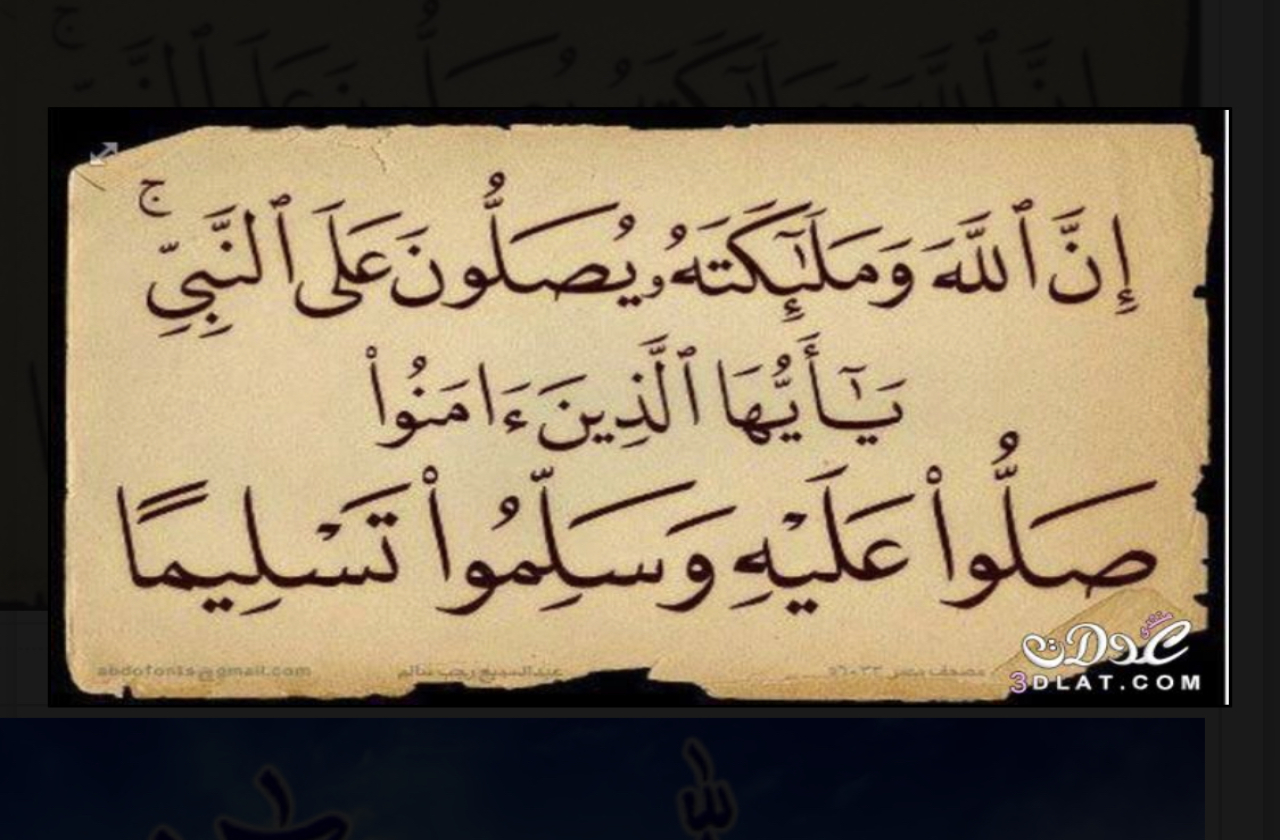 إِنَّ ٱللَّهَ وَمَلَٰٓئِكَتَهُۥ يُصَلُّونَ عَلَى ٱلنَّبِيِّ ۚ
يَٰٓأَيُّهَا ٱلَّذِينَ ءَامَنُوا۟
صَلُّوا۟ عَلَيْهِ وَسَلِّمُوا۟ تَسْلِيمًا
abdofonts@gmail.com عبدالسميع رجب سالم
منتدى عدلات
3DLAT.COM